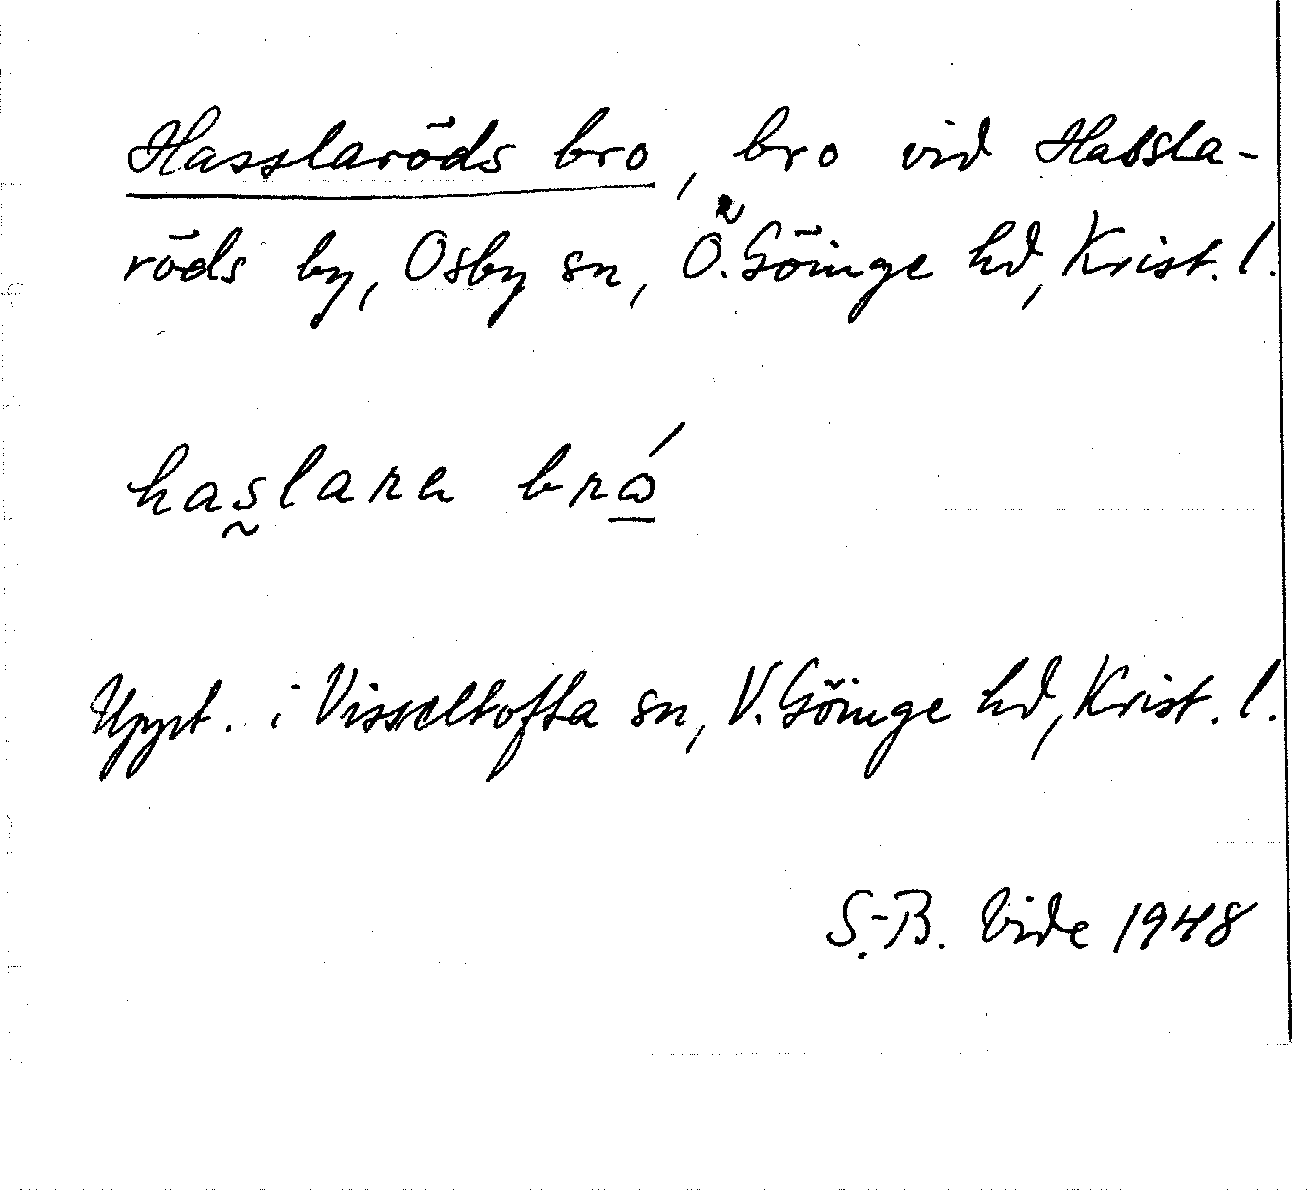 Hasslaröds bro, bro vid Hassla-
röds by, Osby sn, Ö. Göinge hd, Krist. l.
has̰lara brώ̱
Uppt. i Visseltofta sn, V. Göinge hd, Krist. l.
S.-B. Vide 1948